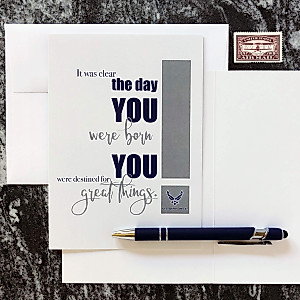 It was clear
the day
YOU
were born
YOU
were destined for
great things.
AIR MAIL